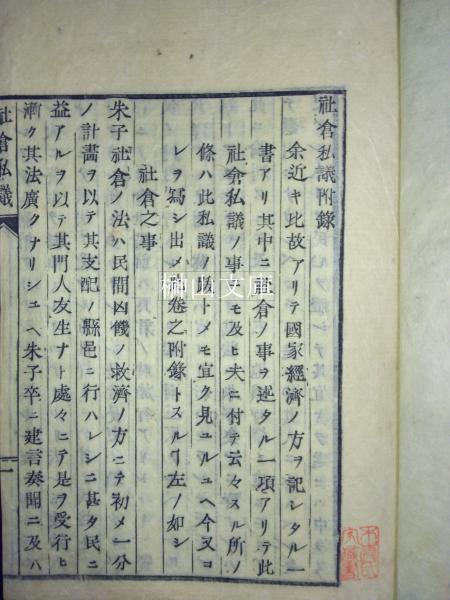 社倉私議附錄
余近キ比故アリテ國家經濟ノ方ヲ記シタル一
書アリ其中ニ社倉ノ事ヲ述タル一項アリテ此
社倉私議ノ事ニモ及ヒ夫ニ付テ云々スル所ノ
條ハ此私議ノ跋トメモ宜ク見ユルユヘ今又コ
レヲ寫シ出メ此卷之附錄トスルヿ左ノ如シ
社倉之事
朱子社倉ノ法ハ民間凶饑ノ救濟ノ方ニテ初メ一分
ノ計畵ヲ以テ其支配ノ縣邑ニ行ハレシニ甚タ民ニ
益アルヲ以テ其門人友生ナト處々ニテ是ヲ受行ヒ
漸ク其法廣クナリシユヘ朱子卒ニ建言奏聞ニ及ハ
社倉私議
榊山文庫